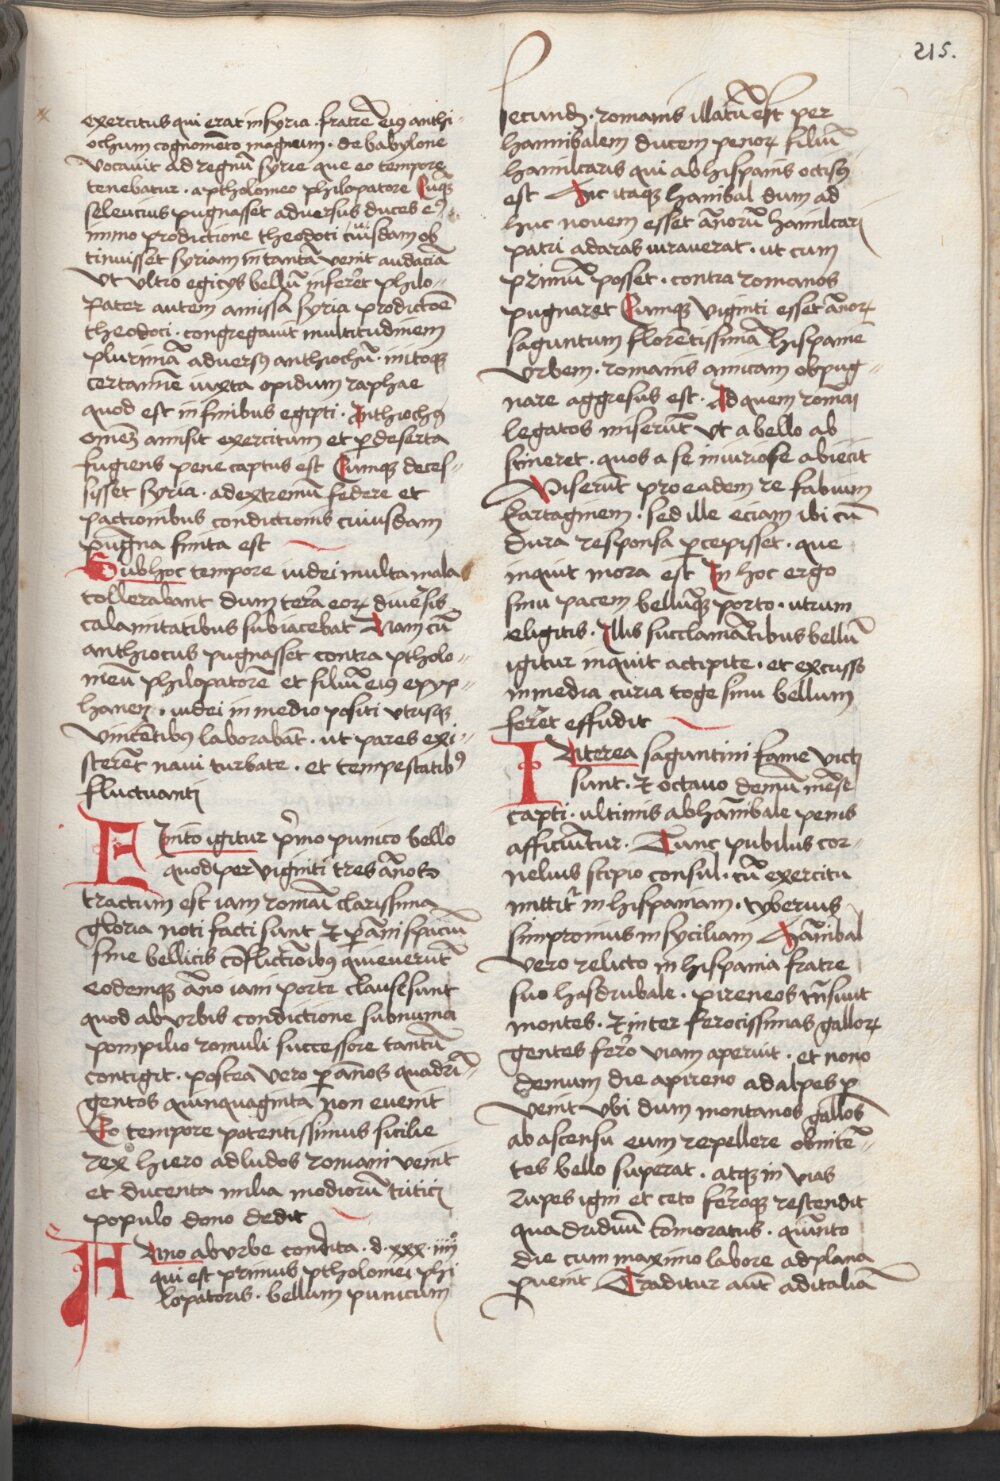 215.
exercitus qui erat in syria · fratrē eiꝰ anthi-
ochum cognomēto magnum · de babylone
vocauit ad regnū syrie que eo tempore
tenebatur · a ptholomeo philopatore Cūqꝫ
seleucius pugnasset aduersus duces eiꝰ
immo prodictione theodoti cuiusdam ob
tinuisset syriam in tantā venit audaciā
Vt vltro egiptijs bellū inferret philo-
pater autem amissa syria prodictōe
theodoti · congregauit multitudinem
plurimā aduersꝰ anthiochū · initoqꝫ
certamine iuxta opidum raphae
quod est in finibus egipti · Anthiochꝰ
omnem amisit exercitum et ꝑ deserta
fugiens pene captus est Cumqꝫ deces-
sisset syria · ad extremū federe et
pactionibus condictionis cuiusdam
pugna finita est
Sub hoc tempore iudei multa mala
tollerabant dum terra eoꝝ diuersis
calamitatibus subiacebat Nam cū
anthiocus pugnasset contra ptholo-
meū philopatorē et filiū eiꝰ epyp-
hanen · iudei in medio positi vtrisqꝫ
vincētibꝰ laborabāt · ut pares exi-
sterēt naui turbate · et tempestatibꝰ
fluctuanti
Finito igitur p̄mo punico bello
quod per viginti tres ānos
tractum est iam romāi clarissima
gloria noti facti sunt Et ꝑ āni spaciū
sine bellicis cōflictōibꝰ quieuerūt
eodemqꝫ āno iani porte clause sunt
quod ab vrbis condictione sub numa
pompilio romuli successore tantū
contigit · postea vero ꝑ ānos quadrī-
gentos quinquaginta non euenit
Eo tempore potentissimus sicilie
rex hiero ad ludos romani venit
et ducenta milia modiorū tritici
populo dono dedit
Anno ab vrbe condita · d · xxx · iiijº
qui est primus ptholomei phi
lopatoris · bellum punicum
secundū · romanis illatū est per
hannibalem ducem penoꝝ filiū
hamilcaris qui ab hispanis occisꝰ
est Hic itaqꝫ hanibal dum ad
huc nouem esset ānorū hamilcari
patri ad aras iurauerat · ut cum
primū posset · contra romanos
pugnaret Cumqꝫ viginti esset ānoꝝ
saguntum florētissimā hispanie
vrbem · romanis amicam obpug-
nare aggresus est · Ad quem romāi
legatos miserūt vt a bello ab
stineret · quos a se iniuriose abiecit
Miserūt pro eadem re fabium
kartaginem · sed ille eciam ibi cū
dura responsa ꝑcepisset · que
inquit mora est In hoc ergo
sinu pacem bellūqꝫ porto · utrum
eligitis · Illis succlamātibus bellū
igitur inquit accipite · et excusso
in media curia toge sinu bellum
ferret effudit
Interea saguntini fame victi
sunt · Et octauo demū mēse
capti · ultimis ab hānibale penis
afficiūtur · Tunc publius cor-
nelius scipio consul · cū exercitu
mittit̄ in hispaniam · tyberius
simpronius in syciliam Hānibal
vero relicto in hispania fratre
suo hasdrubale · pireneos trāsiuit
montes · Et inter ferocissimas galloꝝ
gentes ferro viam aperuit · et nono
demum die a pireno ad alpes ꝑ
venit vbi dum montanos gallos
ab ascensu eum repellere obnitē-
tes bello superat · atqꝫ in vias
rupes igni et ceto ferroqꝫ restendit
quadriduū cōmoratus · quinto
die cum maximo labore ad plana
ꝑuenit Traditur aūt ad italiā